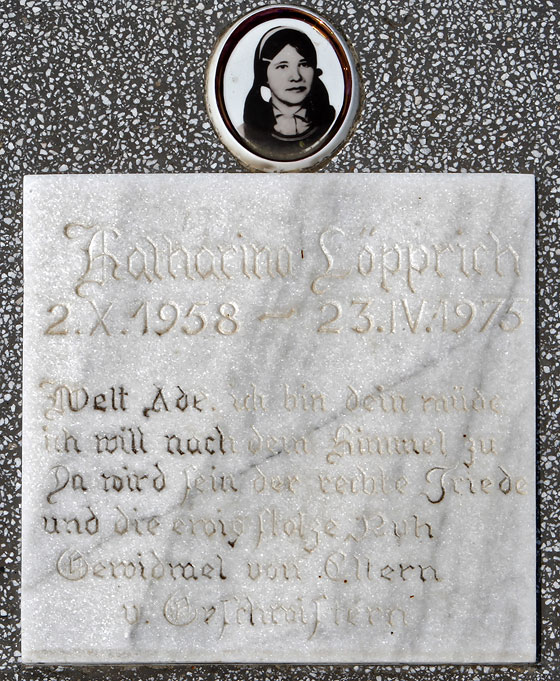 Katharina Löpprich
2.X.1958 – 23.IV.1975
Welt Ade, ich bin dein müde,
ich will nach dem Himmel zu
Da wird sein der rechte Friede
und die ewig stolze Ruh
Gewidmet von Eltern
u. Geschwistern